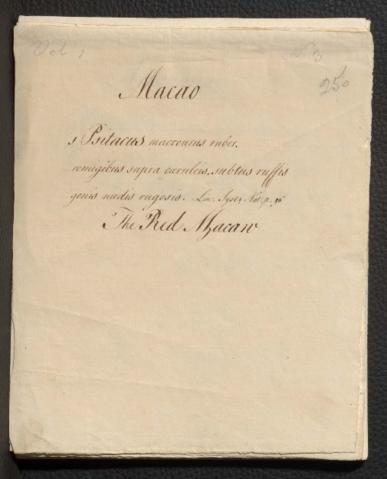 Vol 1
No 3
250
Macao
1 Psitacus macrourus ruber,
remigibus supra cæruleis, subtus ruffis
genis nudis rugosis. Lin. Syst. Nat. p. 96
The Red Macaw